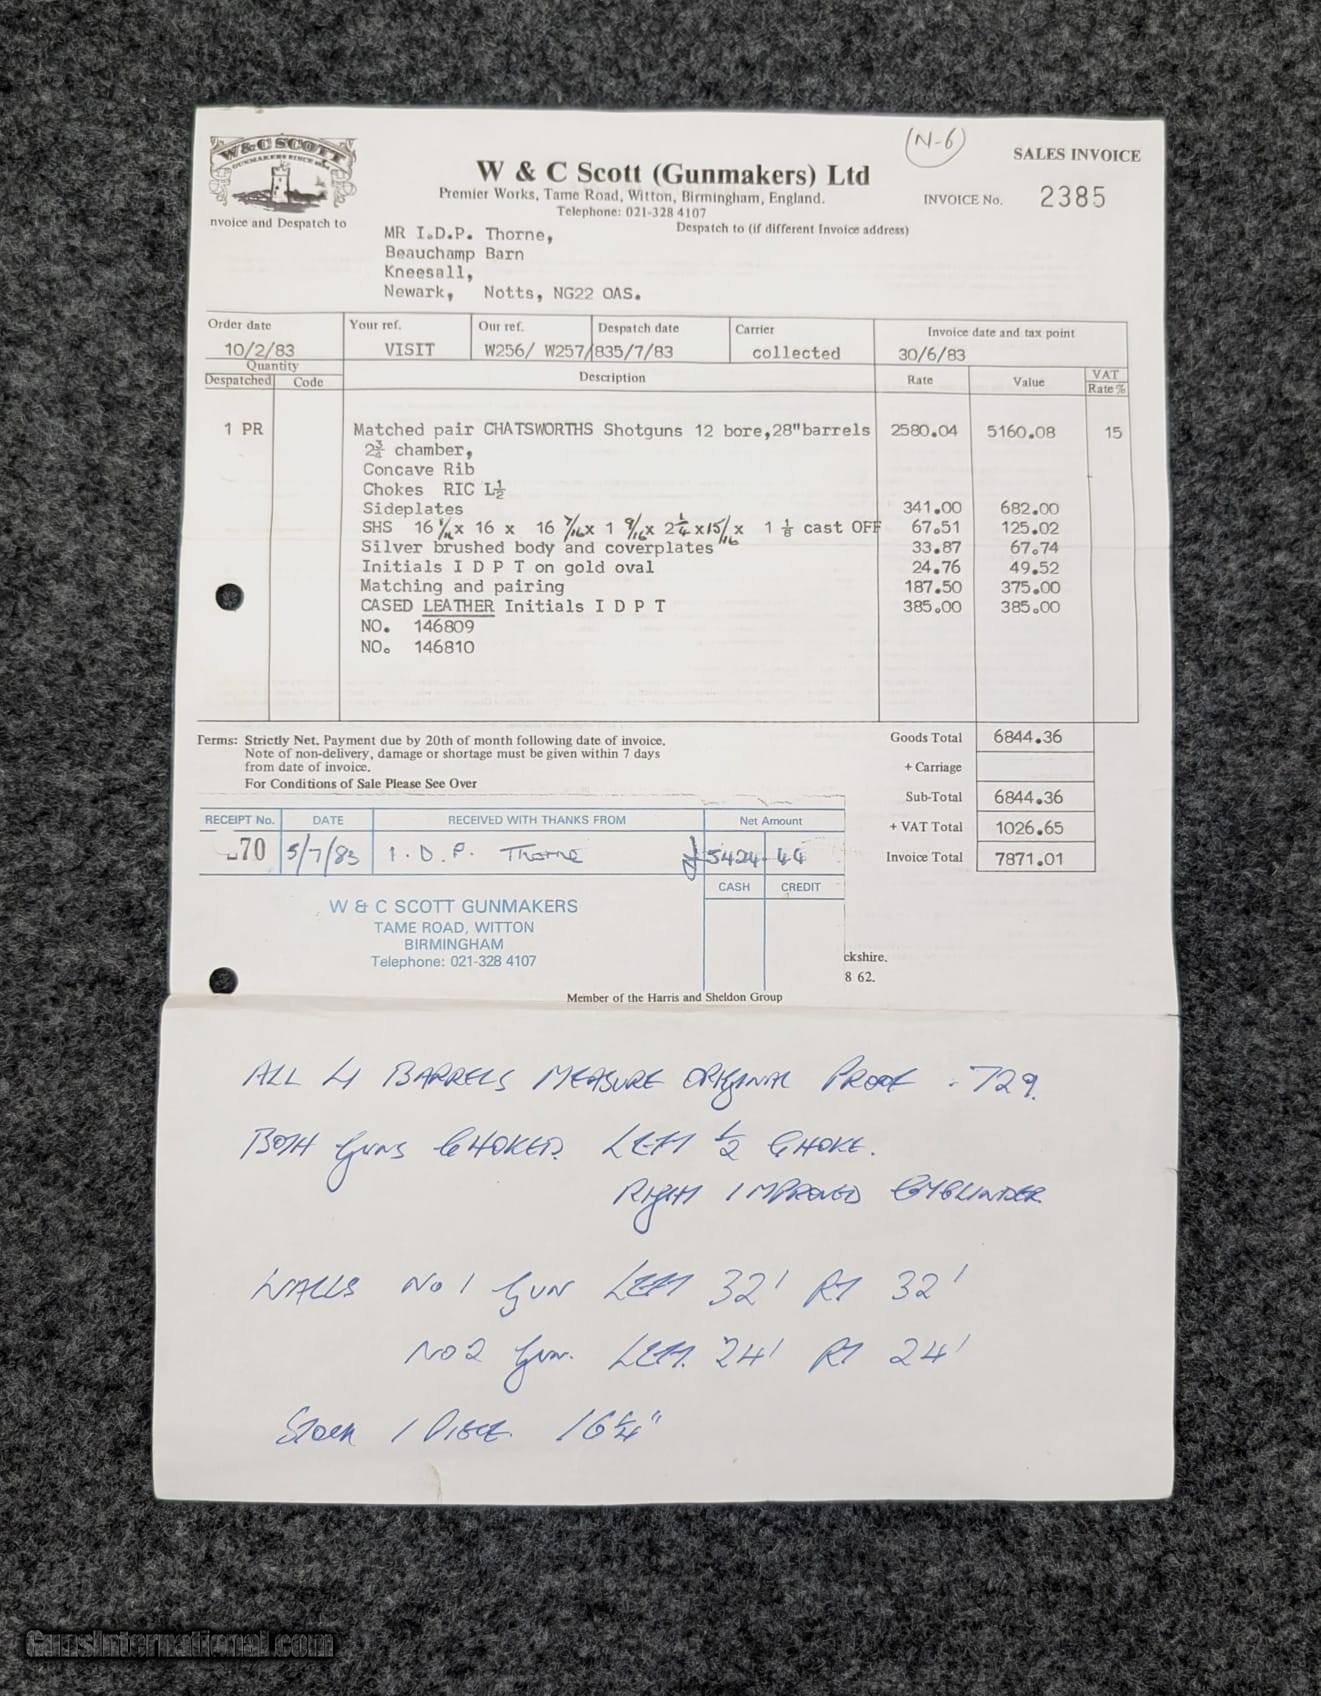 (N-6)
W & C SCOTT
SALES INVOICE
W & C Scott (Gunmakers) Ltd
Premier Works, Tame Road, Witton, Birmingham, England.
Telephone: 021-328 4107
INVOICE No. 2385
nvoice and Despatch to
Despatch to (if different Invoice address)
MR I.D.P. Thorne,
Beauchamp Barn
Kneesall,
Newark, Notts, NG22 OAS.
Order date Your ref. Our ref. Despatch date Carrier Invoice date and tax point
10/2/83 VISIT W256/ W257/835/7/83 collected 30/6/83
Quantity
Despatched Code Description Rate Value VAT Rate %
1 PR Matched pair CHATSWORTHS Shotguns 12 bore,28"barrels 2580.04 5160.08 15
2¾ chamber,
Concave Rib
Chokes RIC L½
Sideplates 341.00 682.00
SHS 16 x 16 x 16 7/16 x 1 9/16 x 2¼ x 15/16 x 1 ⅛ cast OFF 67.51 125.02
Silver brushed body and coverplates 33.87 67.74
Initials I D P T on gold oval 24.76 49.52
Matching and pairing 187.50 375.00
CASED LEATHER Initials I D P T 385.00 385.00
NO. 146809
NO. 146810
Terms: Strictly Net. Payment due by 20th of month following date of invoice.
Note of non-delivery, damage or shortage must be given within 7 days
from date of invoice.
For Conditions of Sale Please See Over
Goods Total 6844.36
+ Carriage
Sub-Total 6844.36
+ VAT Total 1026.65
Invoice Total 7871.01
RECEIPT No. DATE RECEIVED WITH THANKS FROM Net Amount
70 5/7/83 I. D. P. Thorne £5424.44
CASH CREDIT
W & C SCOTT GUNMAKERS
TAME ROAD, WITTON
BIRMINGHAM
Telephone: 021-328 4107
ckshire.
8 62.
Member of the Harris and Sheldon Group
ALL 4 BARRELS MEASURE ORIGINAL PROOF .729.
BOTH GUNS CHOKED. LEFT ½ CHOKE.
RIGHT IMPROVED CYLINDER
WALLS NO 1 GUN LEFT 32' RT 32'
NO 2 GUN. LEFT. 24' RT 24'
STOCK 1 PIECE. 16¼"
GunsInternational.com